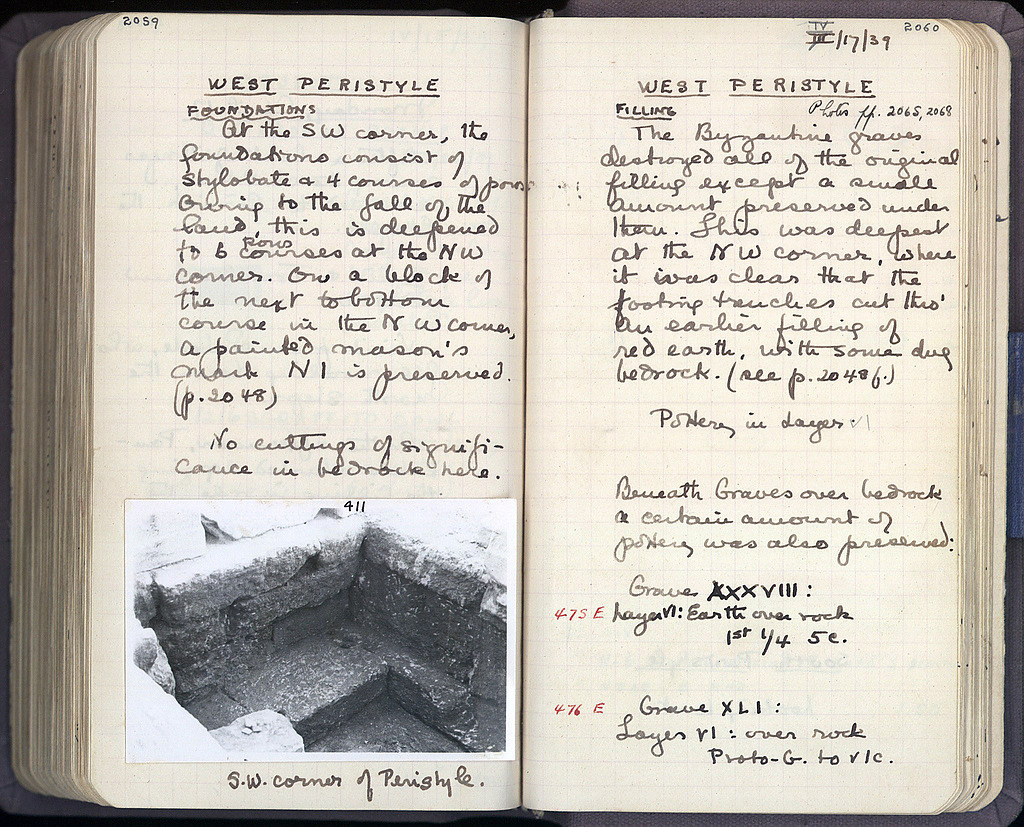 2059
WEST PERISTYLE
FOUNDATIONS
At the SW corner, the
foundations consist of
stylobate & 4 courses of poros
Owing to the fall of the
land, this is deepened
to 6 poros courses at the NW
corner. On a block of
the next to bottom
course in the NW corner,
a painted mason's
mark N I is preserved.
(p. 2048)
No cuttings of signifi-
cance in bedrock here.
411
S.W. corner of Peristyle.
2060
IV/17/39
WEST PERISTYLE
FILLING Photos pp. 2065, 2068
The Byzantine graves
destroyed all of the original
filling except a small
amount preserved under
them. This was deepest
at the NW corner, where
it was clear that the
footing trenches cut thro'
an earlier filling of
red earth, with some dug
bedrock. (see p. 2048 f.)
Pottery in Layer VI
Beneath Graves over bedrock
a certain amount of
pottery was also preserved:
Grave XXXVIII:
475 E Layer VI: Earth over rock
1st 1/4 5c.
476 E Grave XLI:
Layer VI: over rock
Proto-G. to V/c.